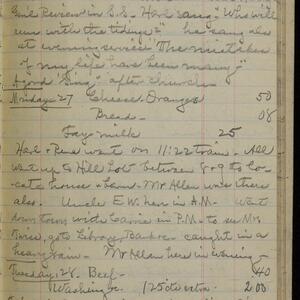 Gen'l Review in S.S. - Harl sang "Who will
run with the tidings?" he sang also
at evening service "The mistakes
of my life have been many"
Good "Sing" after church -
Monday 27 Cheese Oranges 50
Bread - 08
Fay milk 25
Harl & went on 11:22 train. All
went up to Hill Lot between 8 & 9 to lo-
cate house & barn - Mr Allan was there
also. Uncle E.W. here in A.M. Went
down town with Carrie in P.M. to see Mrs
, go to Library, Bank & caught in a
heavy rain - Mr Allan here in evening -
Tuesday 28. Beef - 40
Washing 2.00